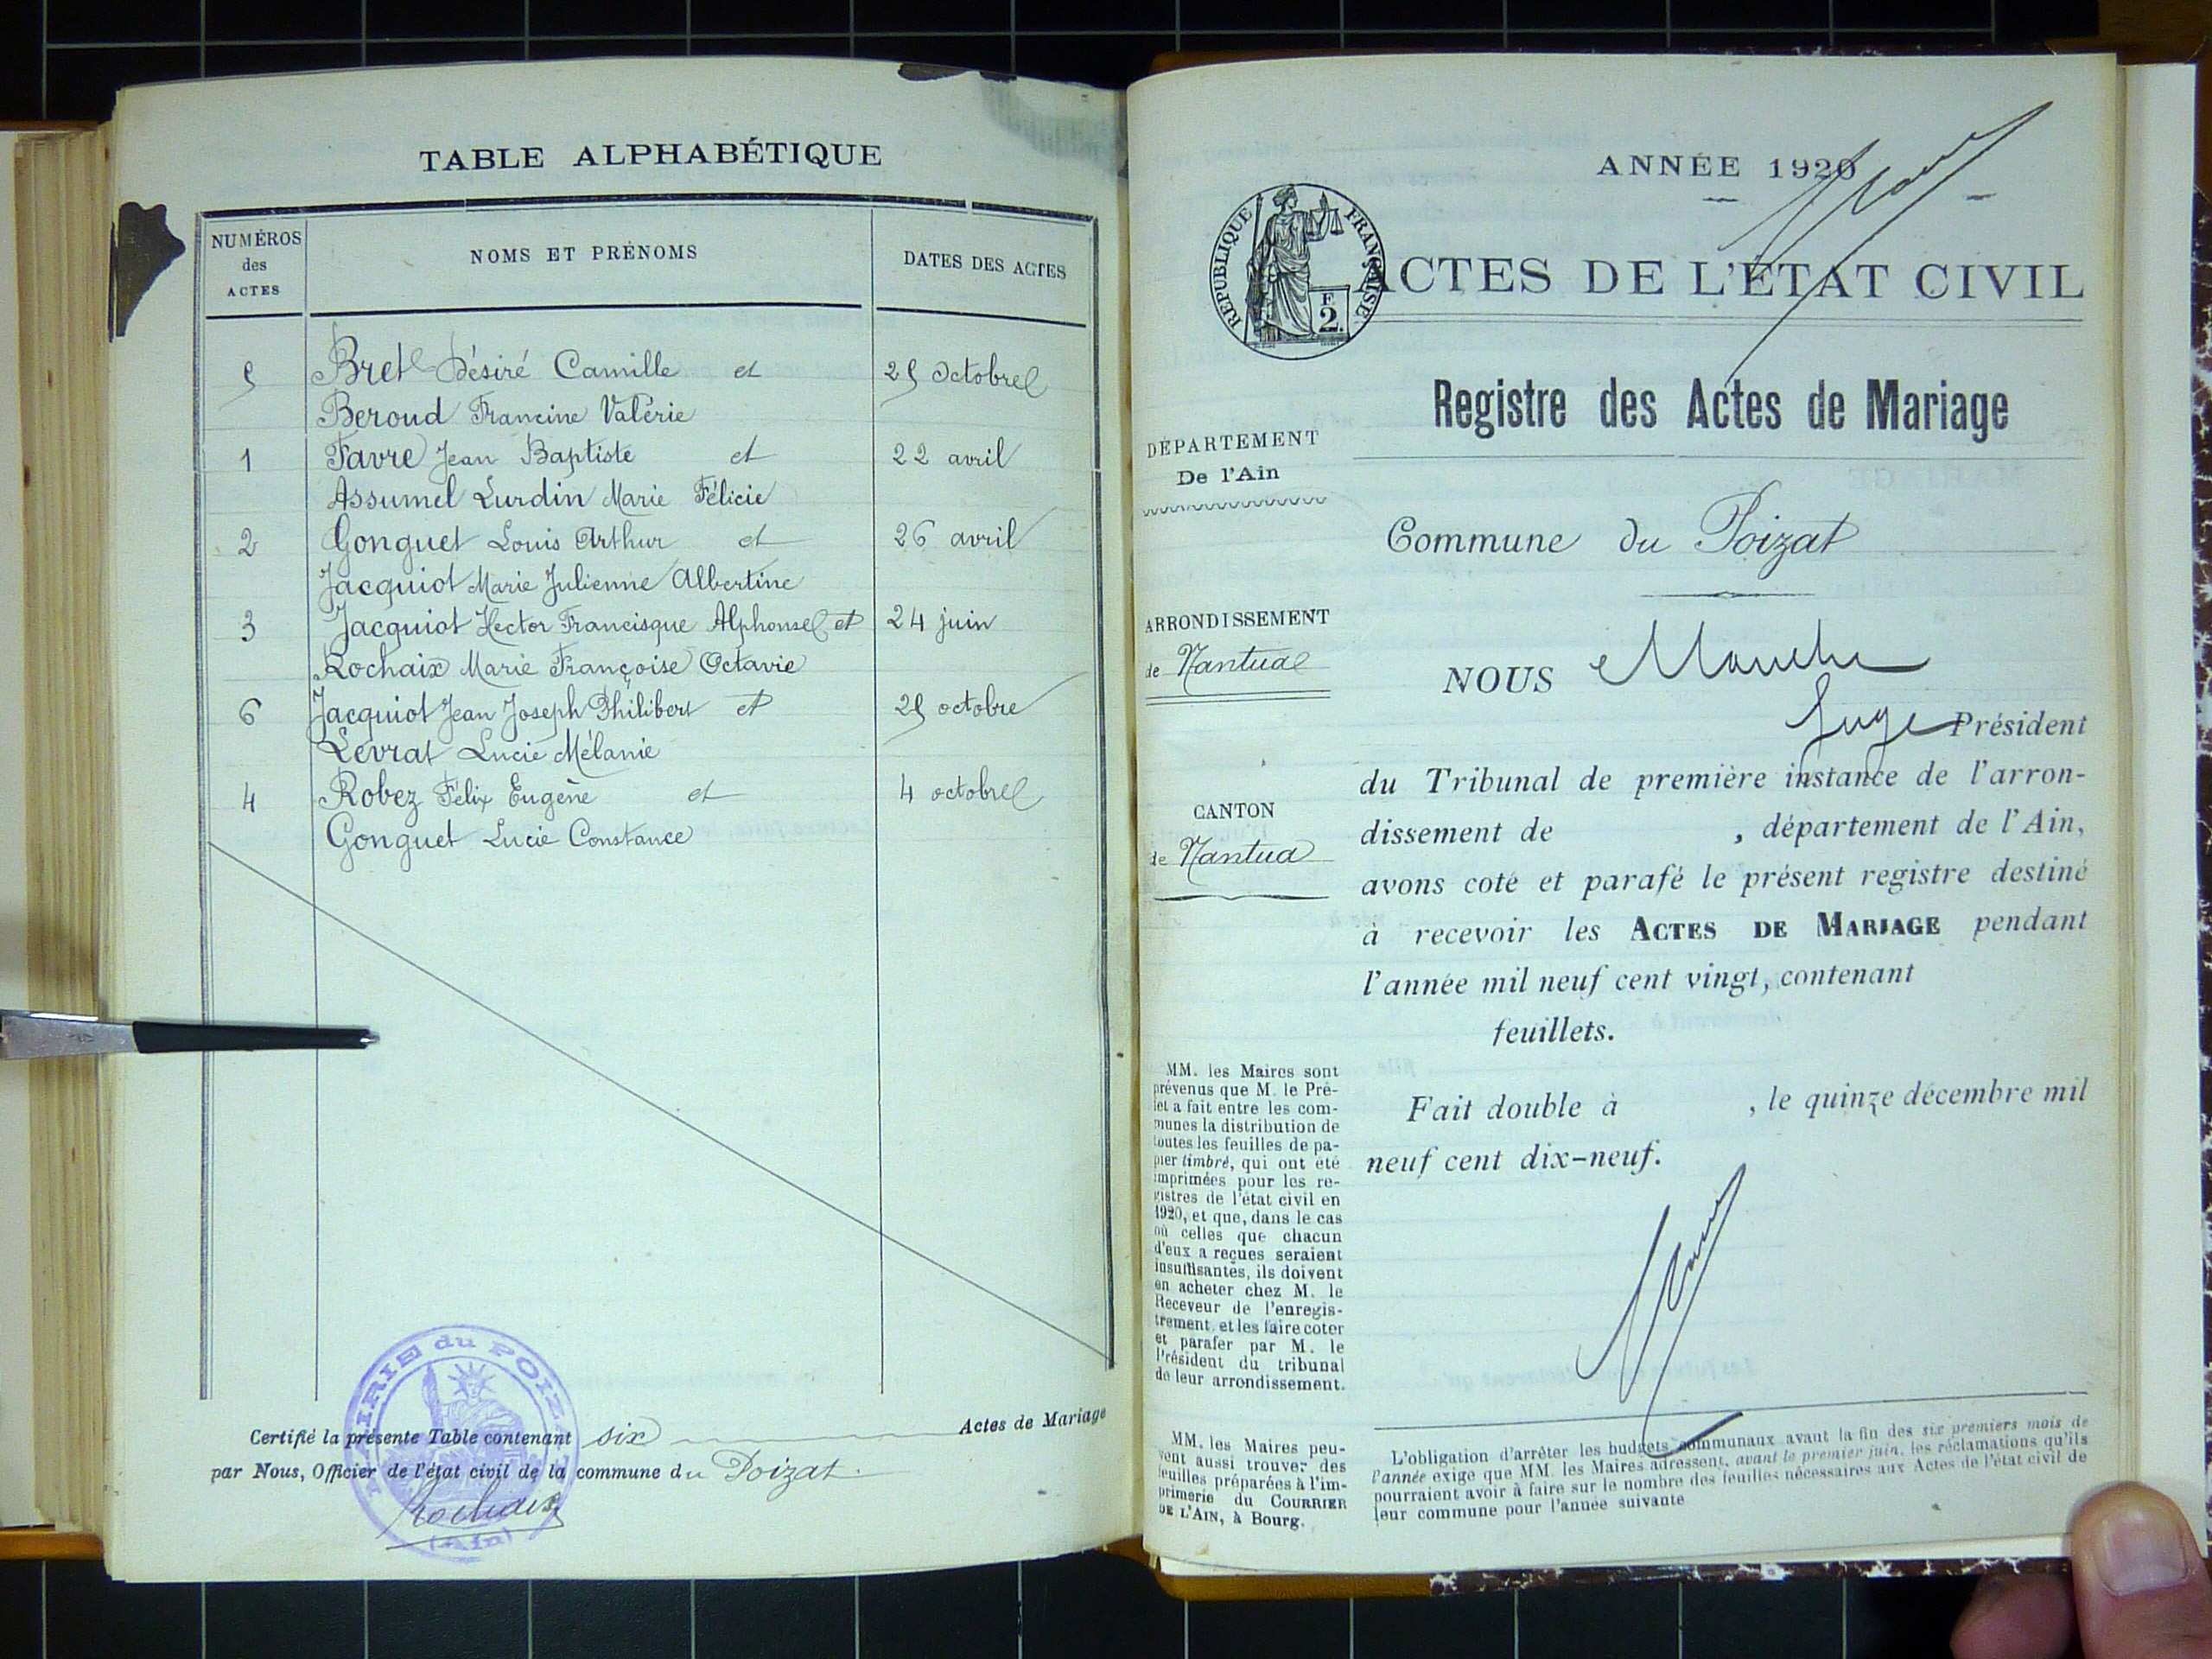 TABLE ALPHABÉTIQUE
NUMÉROS
des
ACTES
NOMS ET PRÉNOMS
DATES DES ACTES
5 Bret Désiré Camille et 25 Octobre
Beroud Francine Valérie
1 Favre Jean Baptiste et 22 avril
Assumel Lurdin Marie Félicie
2 Gonguet Louis Arthur et 26 avril
Jacquiot Marie Julienne Albertine
3 Jacquiot Hector Francisque Alphonse et 24 juin
Rochaix Marie Françoise Octavie
6 Jacquiot Jean Joseph Philibert et 25 octobre
Levrat Lucie Mélanie
4 Robez Félix Eugène et 4 octobre
Gonguet Lucie Constance
MAIRIE du POIZAT
(Ain)
Certifié la présente Table contenant six Actes de Mariage
par Nous, Officier de l'état civil de la commune du Poizat.
Rochaix
ANNÉE 1920
RÉPUBLIQUE FRANÇAISE
F.
2.
ACTES DE L'ÉTAT CIVIL
Registre des Actes de Mariage
DÉPARTEMENT
De l'Ain
Commune du Poizat
ARRONDISSEMENT
de Nantua
CANTON
de Nantua
NOUS
Juge Président
du Tribunal de première instance de l'arron-
dissement de , département de l'Ain,
avons coté et parafé le présent registre destiné
à recevoir les ACTES DE MARIAGE pendant
l'année mil neuf cent vingt, contenant
feuillets.
Fait double à , le quinze décembre mil
neuf cent dix-neuf.
MM. les Maires sont
prévenus que M. le Pré-
fet a fait entre les com-
munes la distribution de
toutes les feuilles de pa-
pier timbré, qui ont été
imprimées pour les re-
gistres de l'état civil en
1920, et que, dans le cas
où celles que chacun
d'eux a reçues seraient
insuffisantes, ils doivent
en acheter chez M. le
Receveur de l'enregis-
trement, et les faire coter
et parafer par M. le
Président du tribunal
de leur arrondissement.
MM. les Maires peu-
vent aussi trouver des
feuilles préparées à l'im-
primerie du COURRIER
DE L'AIN, à Bourg.
L'obligation d'arrêter les budgets communaux avant la fin des six premiers mois de
l'année exige que MM. les Maires adressent, avant le premier juin, les réclamations qu'ils
pourraient avoir à faire sur le nombre des feuilles nécessaires aux Actes de l'état civil de
leur commune pour l'année suivante